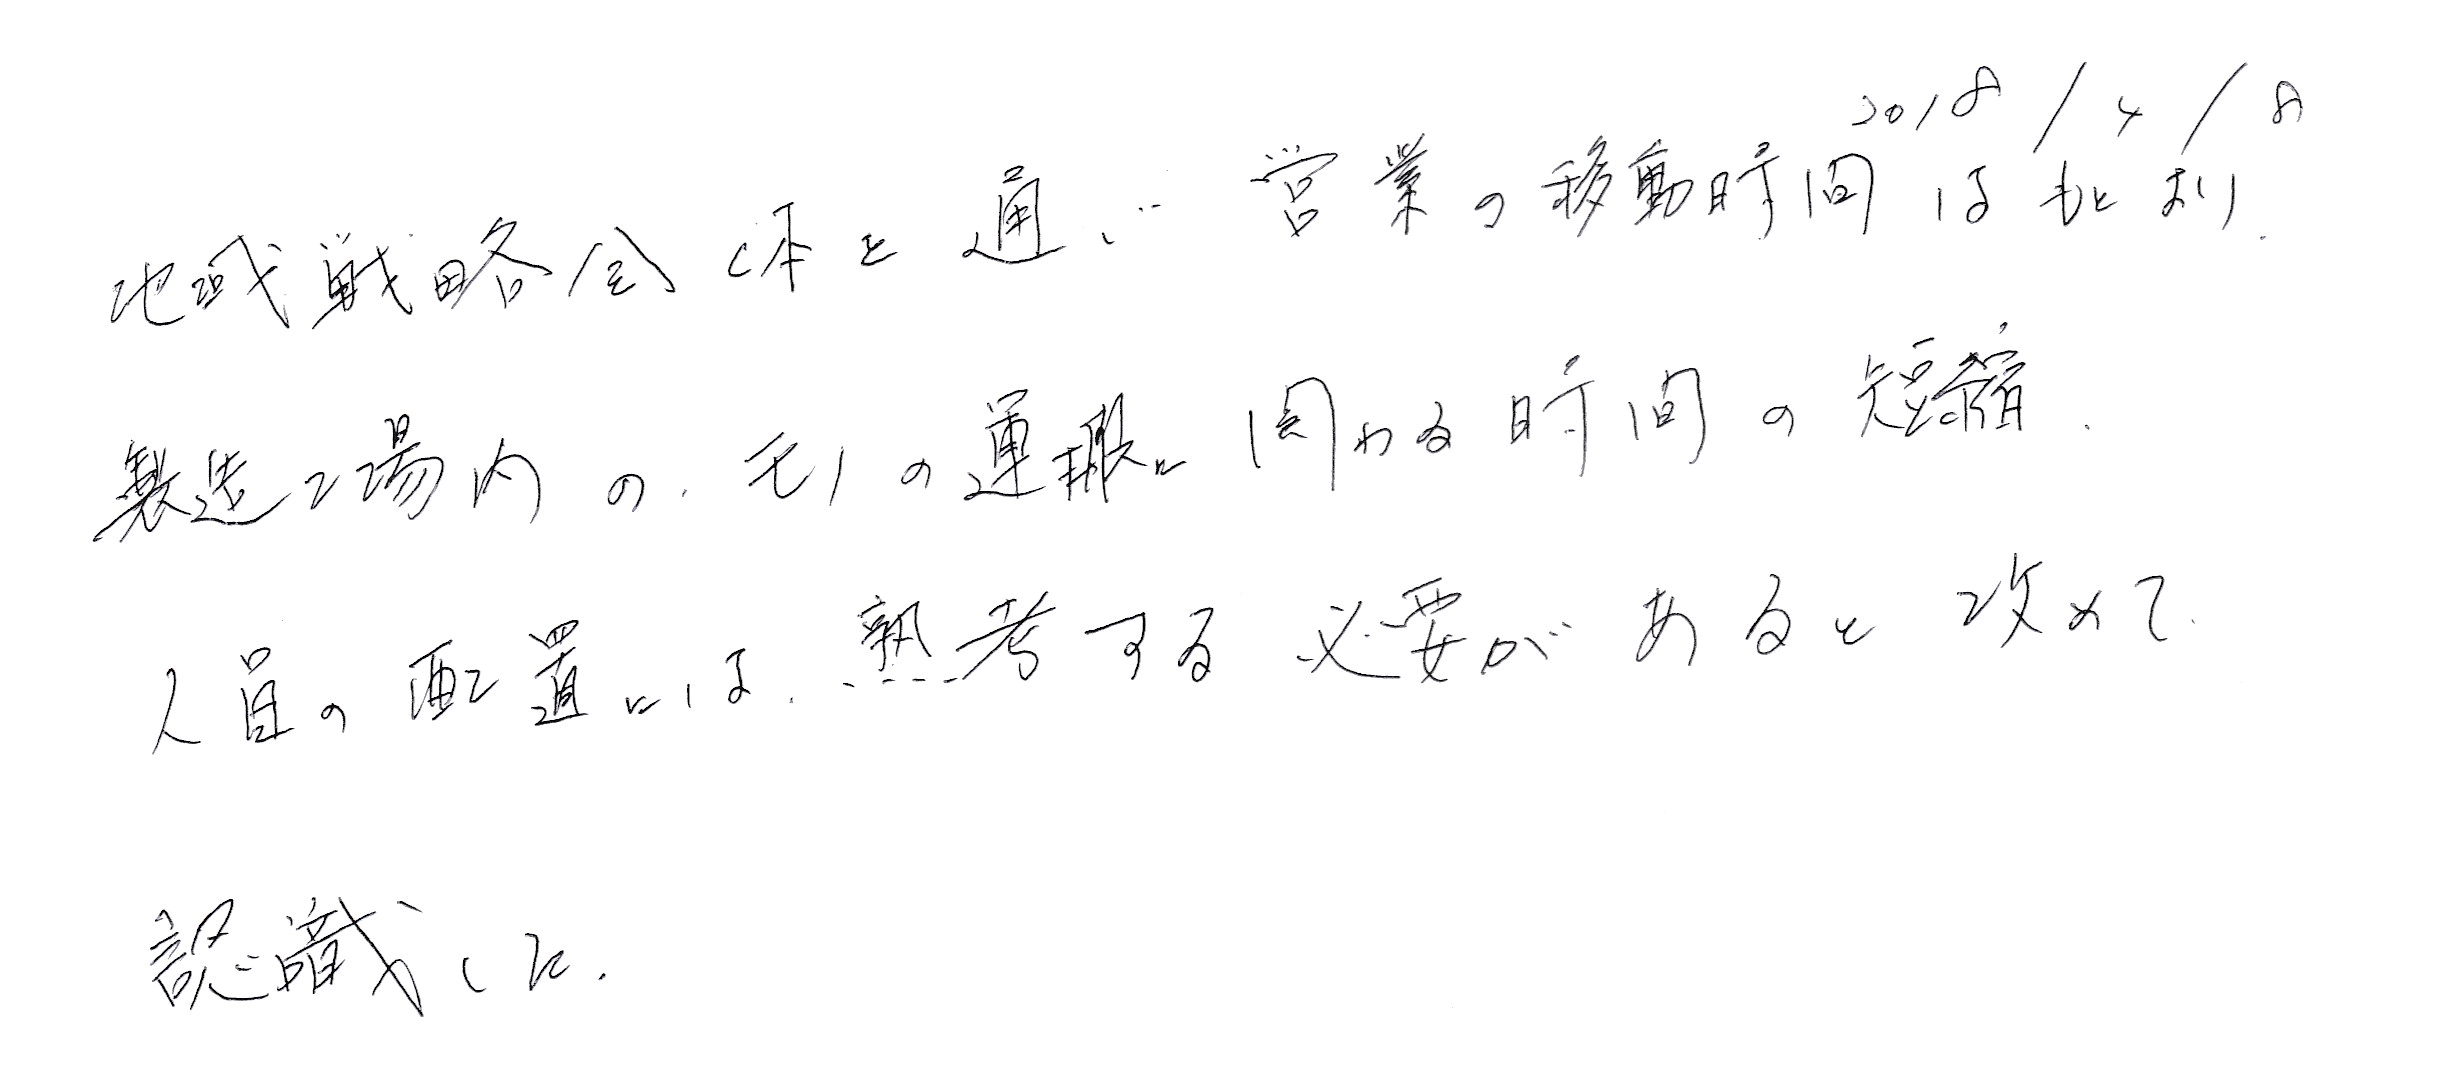 2018/4/8
地域戦略全体を通じ 営業の移動時間はもとより、
製造工場内の、モノの運搬に関わる時間の短縮、
人員の配置には、熟考する必要があると改めて、
認識した。